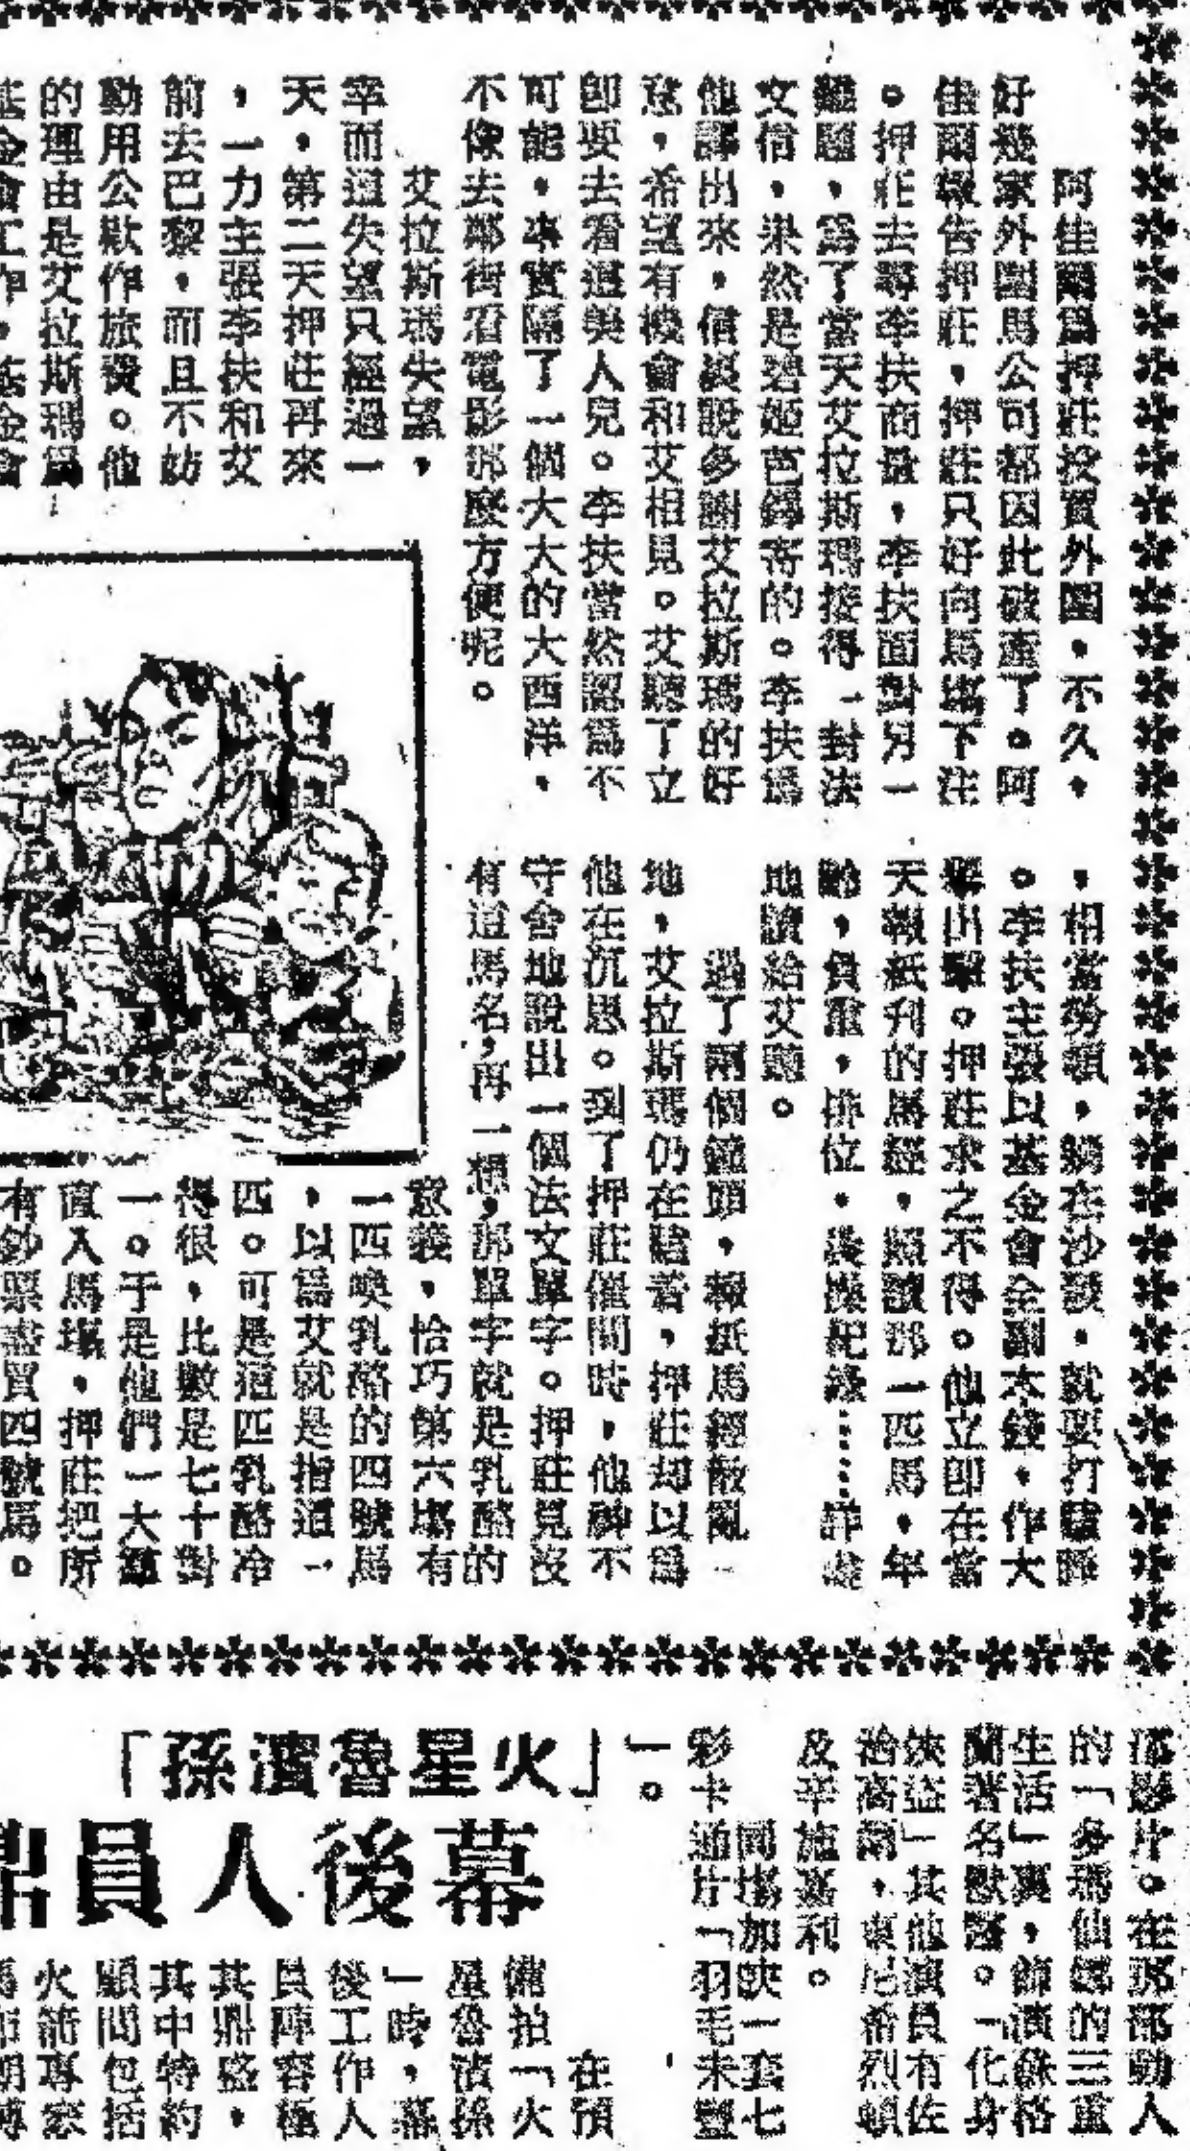 阿佳爾爲押莊投買外圍,不久,
好幾家外圍馬公司都因此破產了。阿
佳爾報告押莊,押莊只好向馬塲下注
。押莊去尋李扶商量,李扶面對另一
難題,爲了當天艾拉斯瑪接得一封法
文信,果然是碧姬芭鐸寄的。李扶爲
他譯出來,信裏說多謝艾拉斯瑪的好
意,希望有機會和艾相見。艾聽了立
卽要去看這美人兒。李扶當然認爲不
可能,事實隔了一個大大的大西洋,
不像去鄰街看電影那麼方便呢。
艾拉斯瑪失望,
幸而這失望只經過一
天,第二天押莊再來
,一力主張李扶和艾
前去巴黎,而且不妨
動用公欵作旅費。他
的理由是艾拉斯瑪爲
基金會工作,基金會
,相當勞頓,躺在沙發,就要打瞌睡
。李扶主張以基金會全副本錢,作大
擧出擊。押莊求之不得。他立卽在當
天報紙刊的馬經,照讀那一匹馬,年
齡,負重,排位,長操紀錄……詳盡
地讀給艾聽。
過了兩個鐘頭,報紙馬經散亂一
地,艾拉斯瑪仍在瞌着,押莊却以爲
他在沉思。到了押莊催問時,他神不
守舍地說出一個法文單字。押莊見沒
有這馬名,再一想,那單字就是乳酪的
意義,恰巧第六塲有
一匹喚乳酪的四號馬
,以爲艾就是指這一
匹。可是這匹乳酪冷
得很,比數是七十對
一。于是他們一大羣
直入馬塲,押莊把所
有鈔票盡買四號馬。
部影片。在那部動人
的「多瑪仙鏢的三重
生活」裏,飾演蘇格
蘭著名獸醫。「化身
俠盜」其他演員有佐
治高爾,東尼希烈頓
及辛施嘉利。
同塲加映一套七
彩卡通片「羽毛未豐
」。
「火星魯濱孫」
幕後人員鼎
在預
備拍「火
星魯濱孫
」時,幕
後工作人
員陣容極
其鼎盛,
其中特約
顧問包括
火箭專家